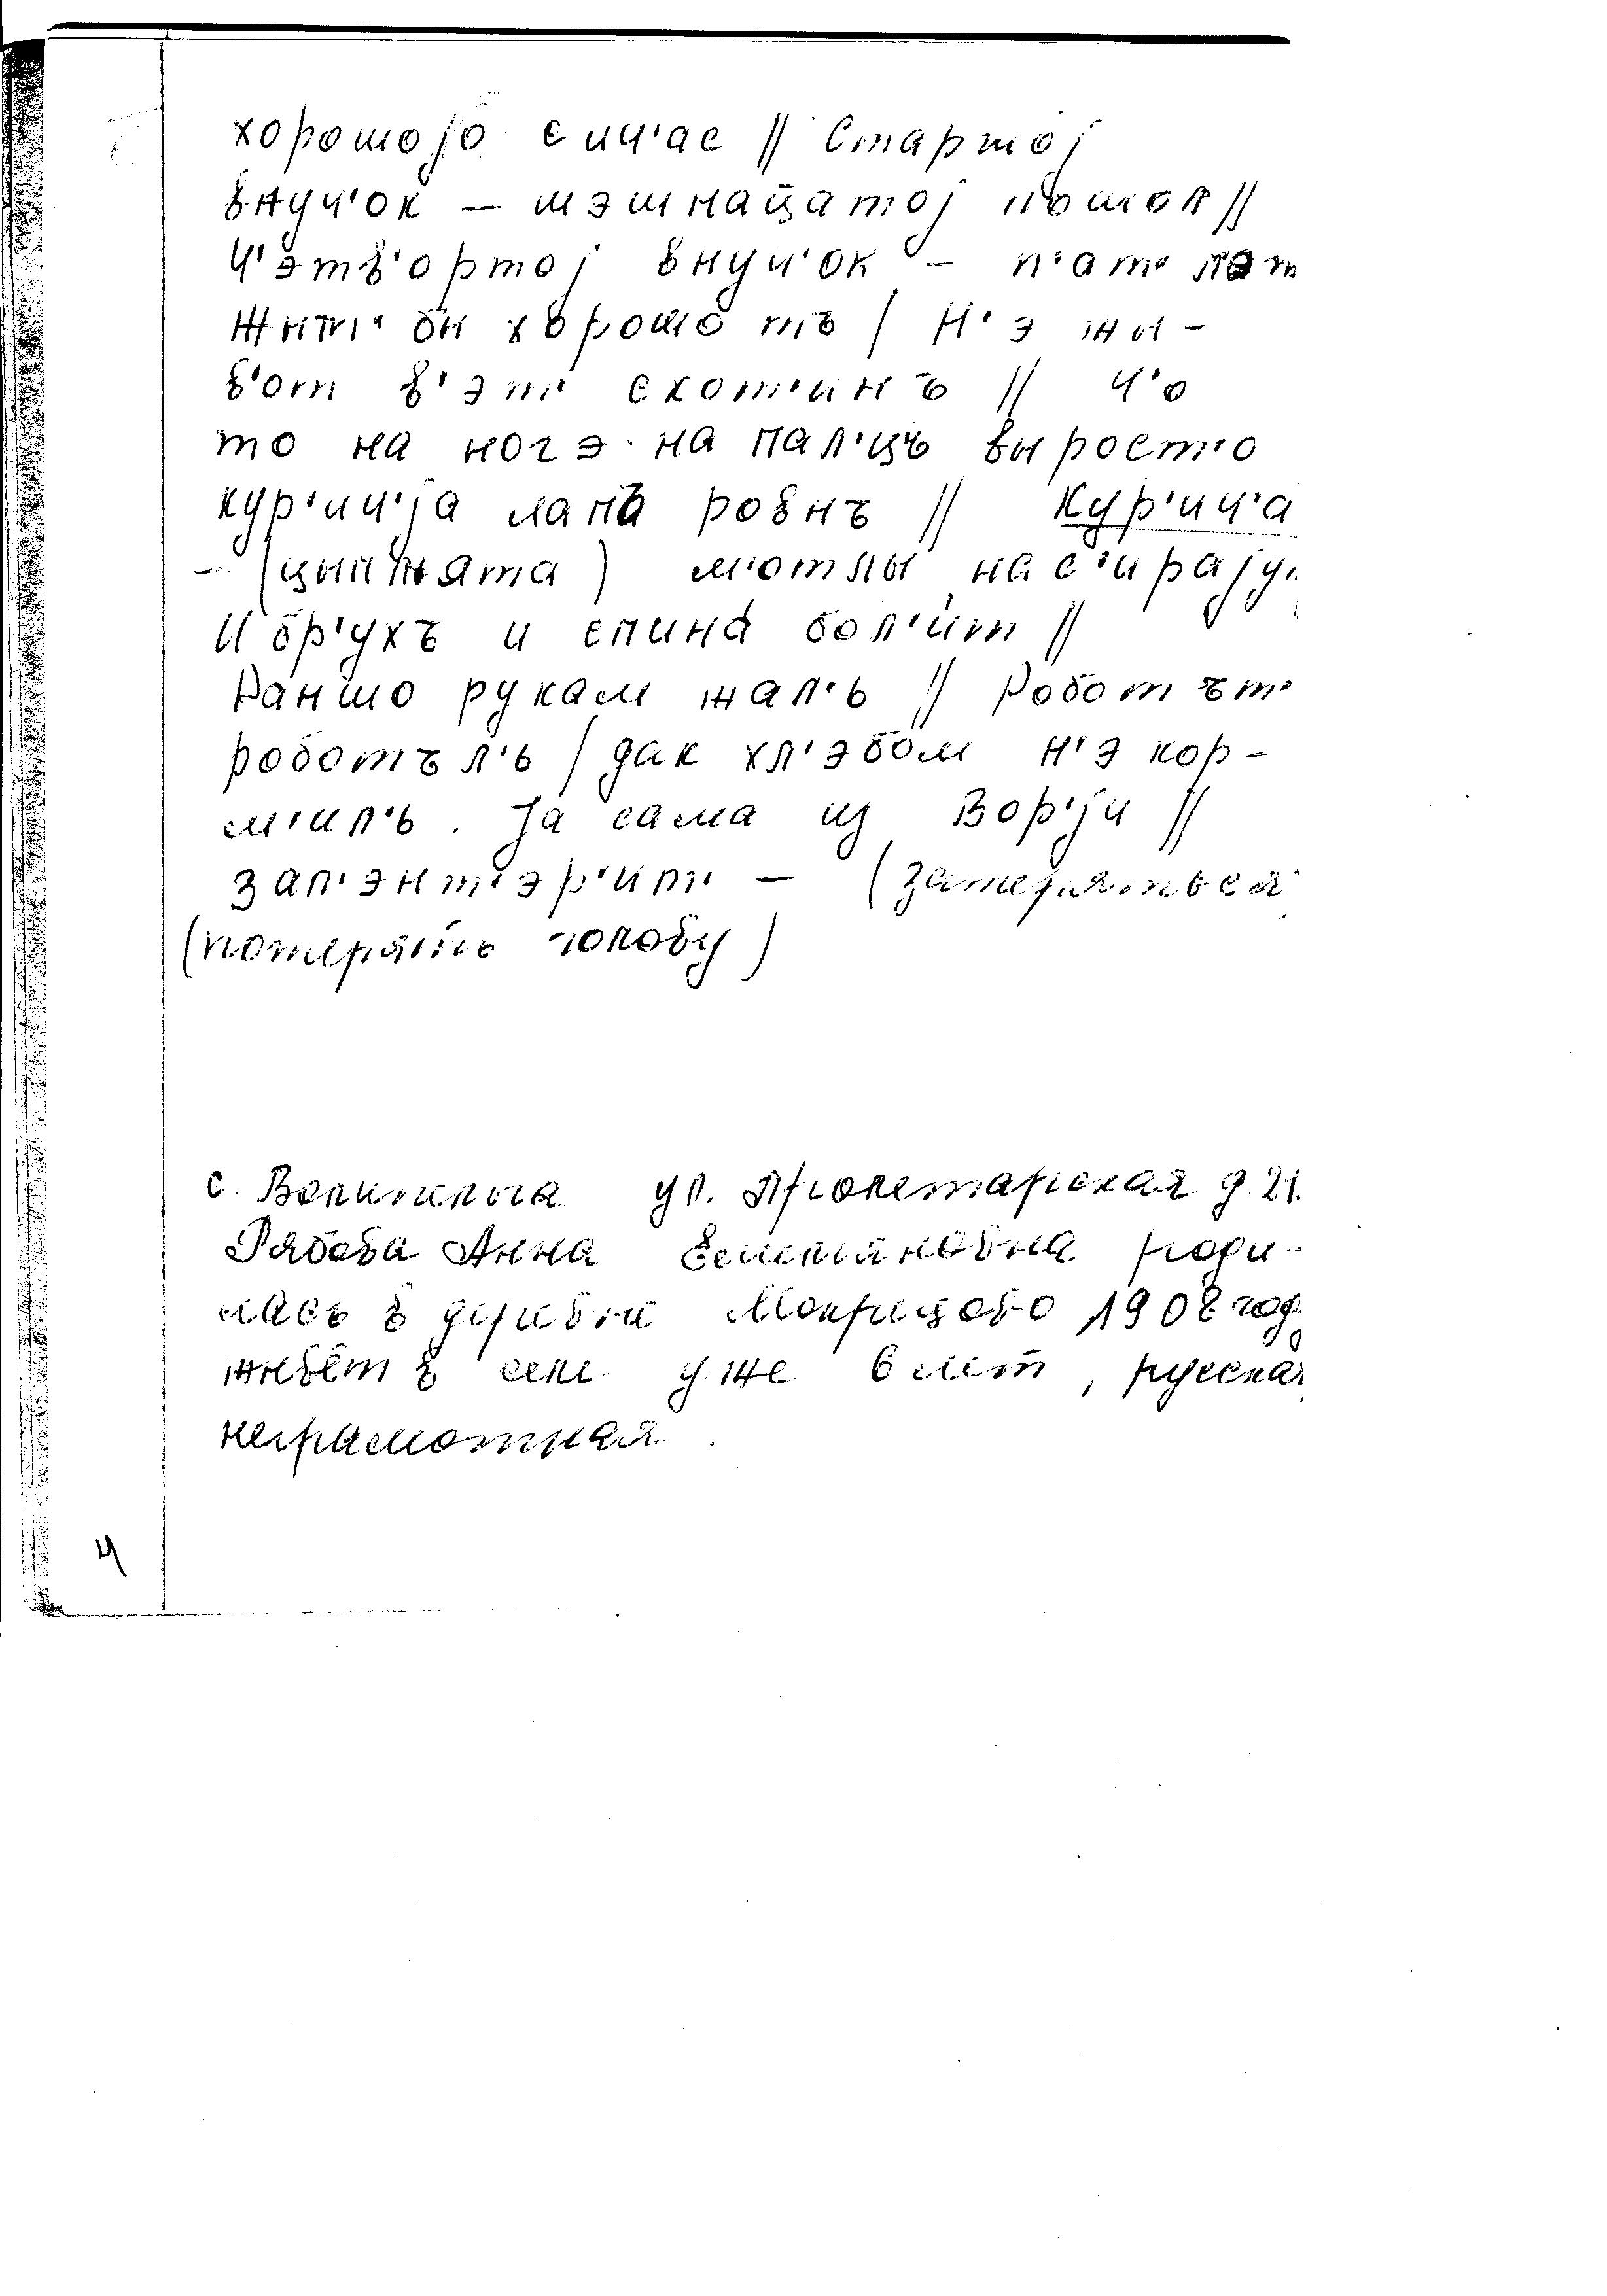 хорошоjо сич'ас // Старшоj
внуч'ок – шэшнаццатоj пошол //
Ч'этв'ортоj внуч'ок – п'ат' л'эт
Жыт' бы хорошо тъ / Н'э жы-
в'от в'эт' скот'инъ // Ч'о
то на ногэ на пал'цъ выросто
кур'ич'jа лапа ровнъ // Кур'ич'а
– (цыплята) м'отлы нас'ирajу
И бр'ухъ и спина бол'ит //
Раншо рукам жал'ь // Роботът'
роботъл'ь / дак хл'эбом н'э кор-
м'ил'ь. Jа сама из Вор'jи //
зал'энт'эр'ит' – (затеряться
(потерять голову)
с. ул. Пролетарская д. 21.
Рябова Анна Емельяновна роди-
лась в деревне 1908 год
живёт в селе уже 6 лет, русская
неграмотная.
4